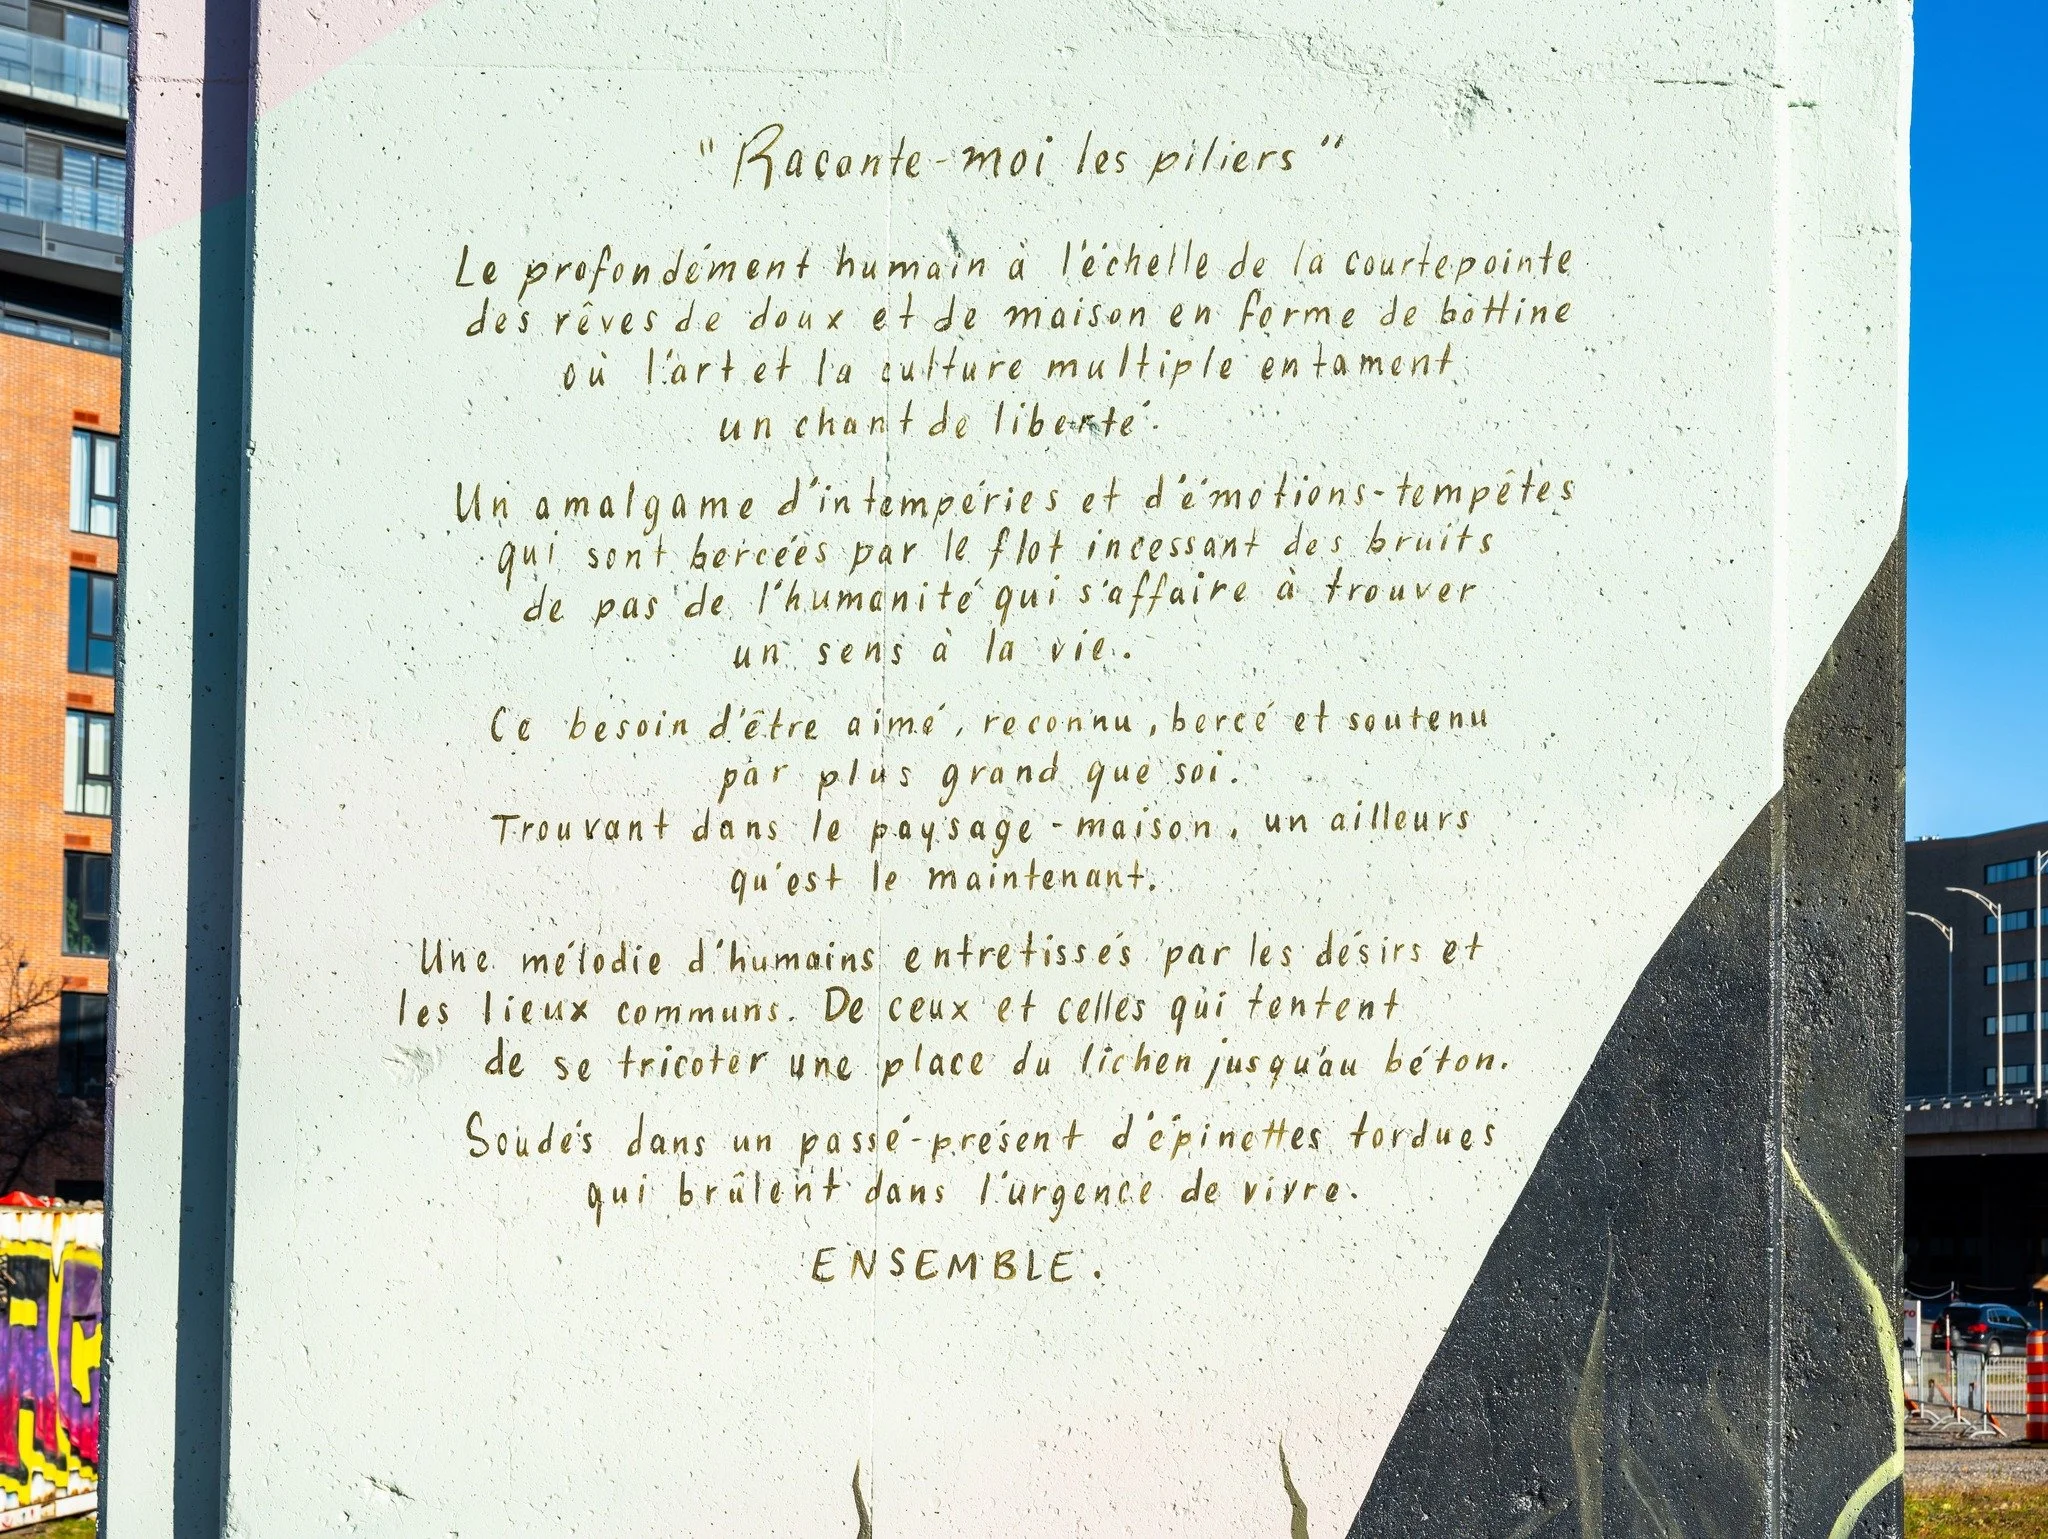 "Raconte-moi les piliers"
Le profondément humain à l'échelle de la courtepointe
des rêves de doux et de maison en forme de bottine
où l'art et la culture multiple entament
un chant de liberté.
Un amalgame d'intempéries et d'émotions-tempêtes
qui sont bercées par le flot incessant des bruits
de pas de l'humanité qui s'affaire à trouver
un sens à la vie.
Ce besoin d'être aimé, reconnu, bercé et soutenu
par plus grand que soi.
Trouvant dans le paysage-maison, un ailleurs
qu'est le maintenant.
Une mélodie d'humains entretissés par les désirs et
les lieux communs. De ceux et celles qui tentent
de se tricoter une place du lichen jusqu'au béton.
Soudés dans un passé-présent d'épinettes tordues
qui brûlent dans l'urgence de vivre.
ENSEMBLE.